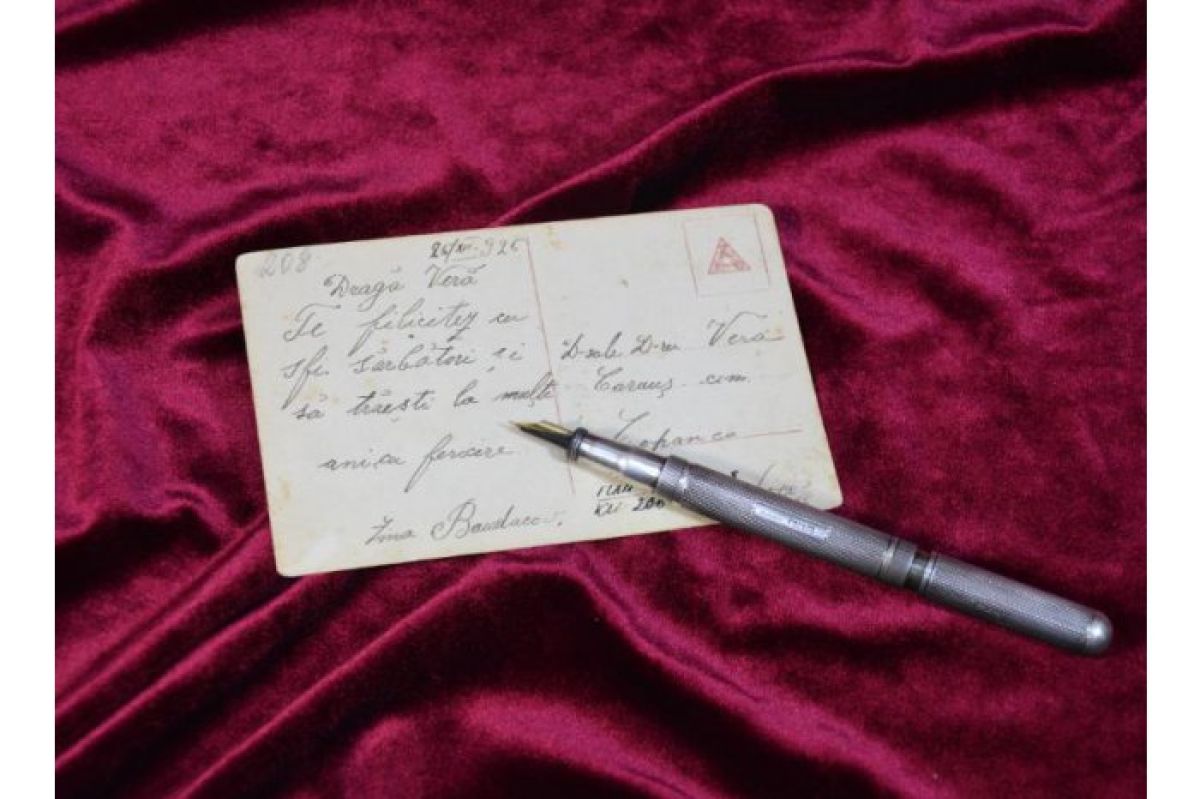 208
26/XII 926
Dragă Veră
Te filicitez cu
sfi. sărbători și
să trăești la mulți
ani cu fericire
D-sale D-ra Veră
Carauș com.
Copanca
КП 206